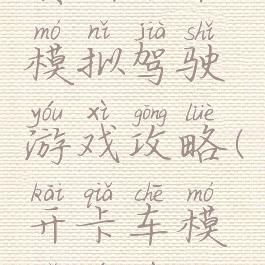 mó nǐ jià shǐ
模拟驾驶
yóu xì gōng lüè
游戏攻略(
kāi qiǎ chē mó
开卡车模